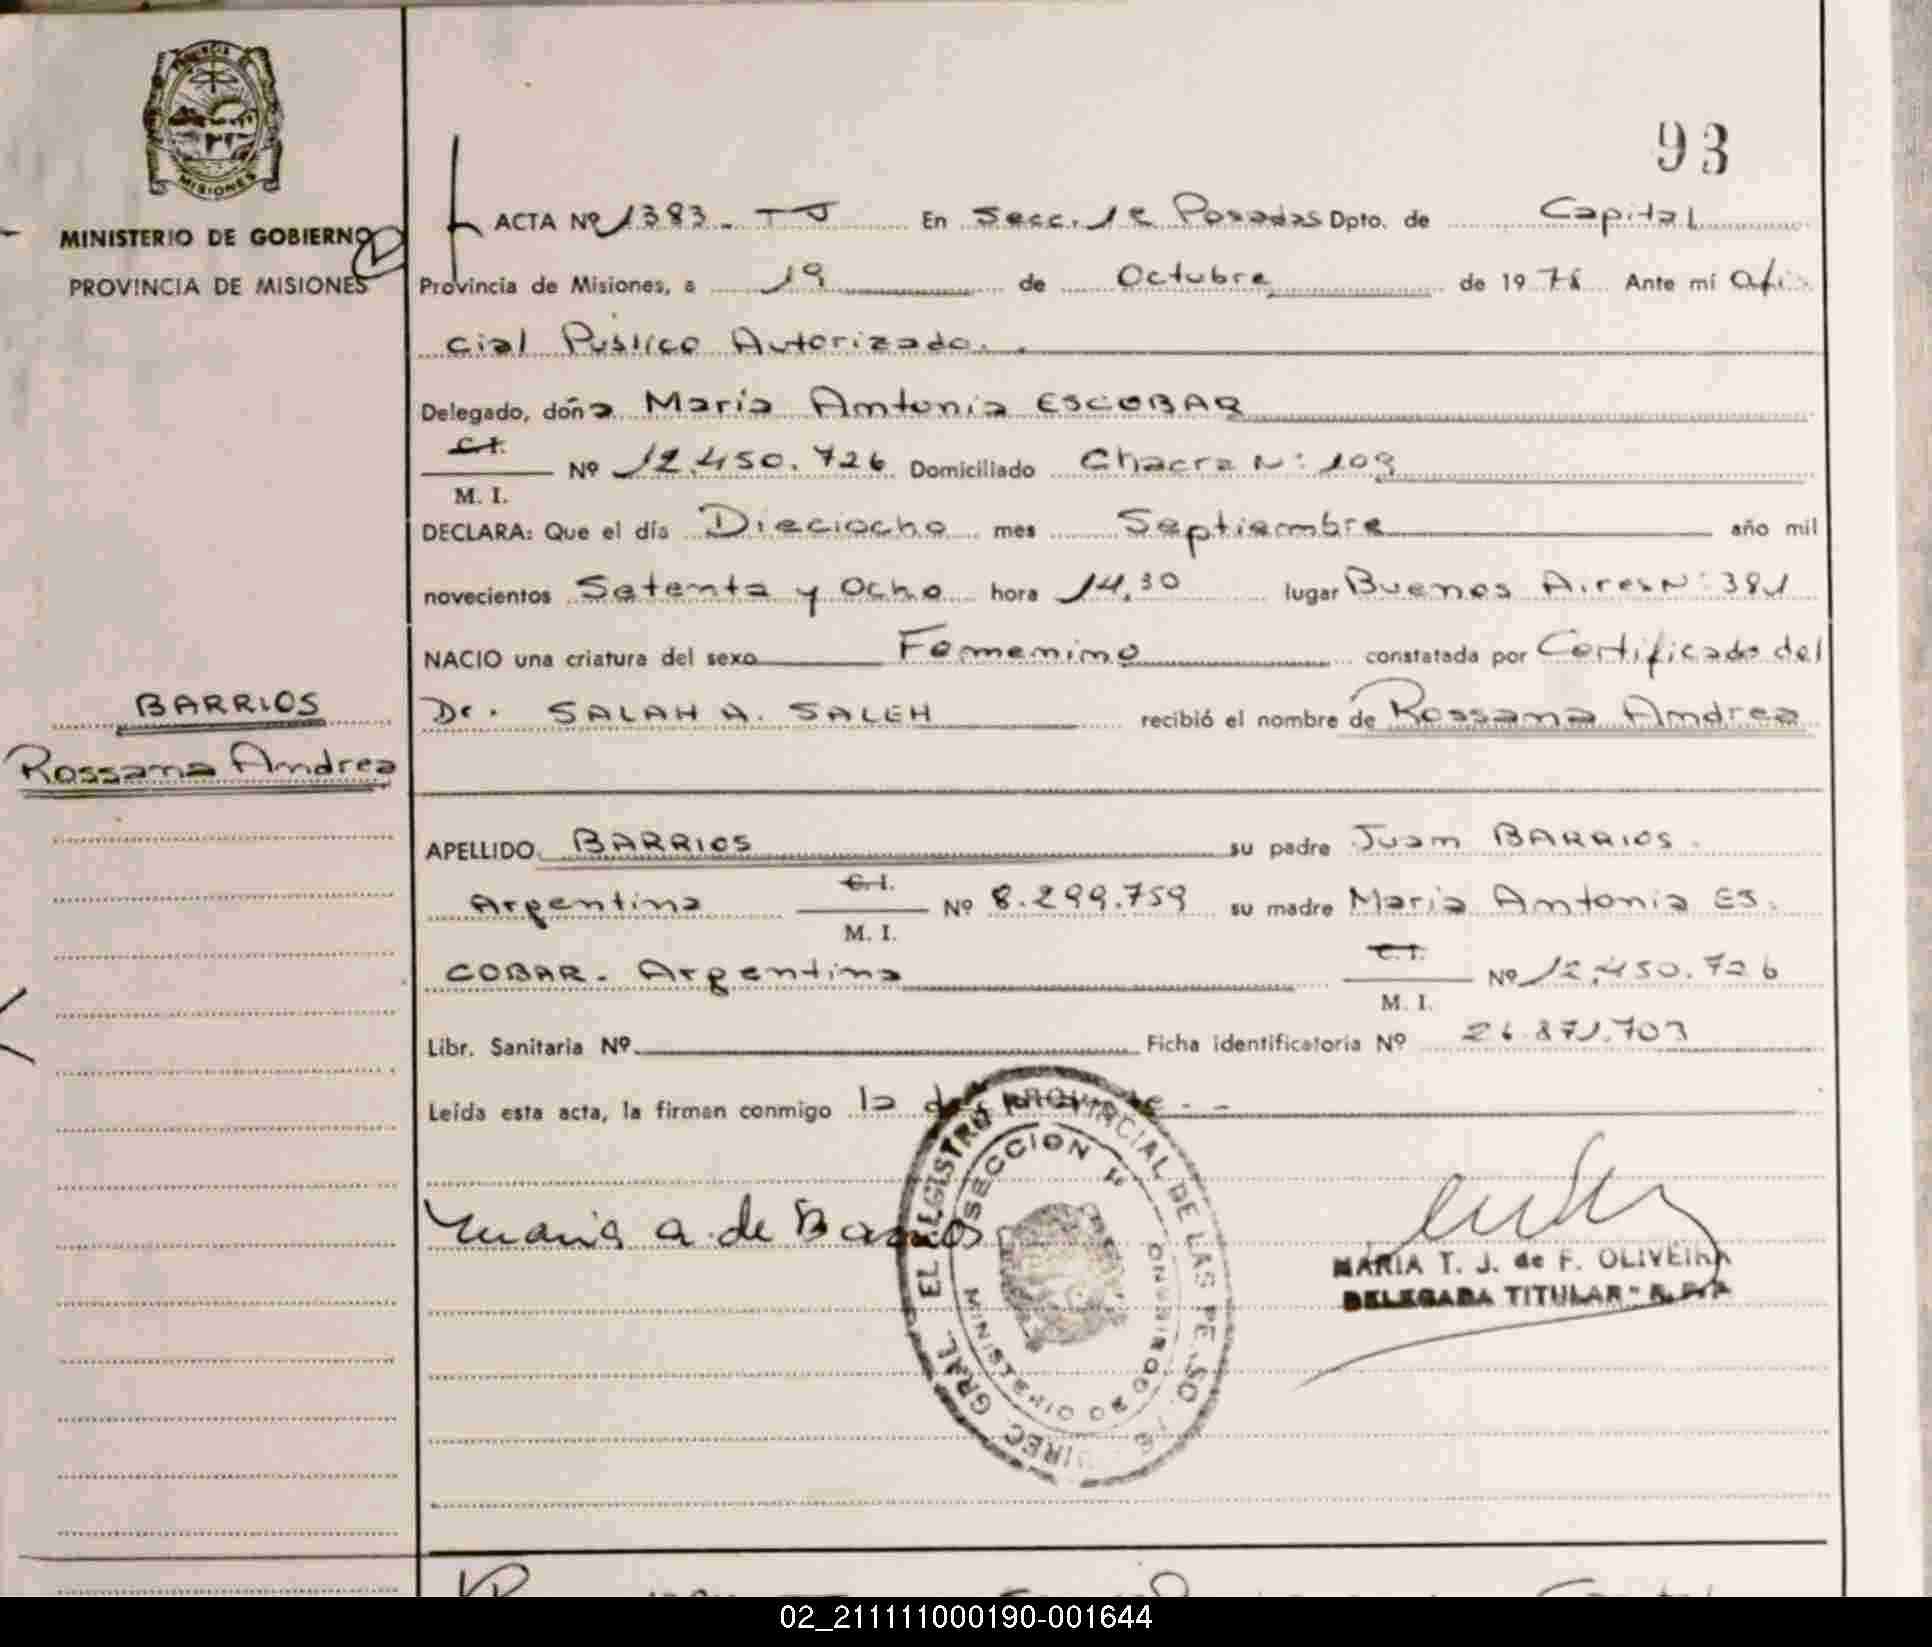 PROVINCIA DE
MISIONES
MINISTERIO DE GOBIERNO
PROVINCIA DE MISIONES
93
ACTA Nº 1383 - TJ En Secc. 1ª Posadas Dpto. de Capital
Provincia de Misiones, a 19 de Octubre de 1978 Ante mí Ofi-
cial Público Autorizado.
Delegado, doña Maria Antonia ESCOBAR
C.I.
M. I. Nº 12.450.726 Domiciliado Chacra Nº: 109
DECLARA: Que el día Dieciocho mes Septiembre año mil
novecientos Setenta y Ocho hora 14,30 lugar Buenos Aires Nº: 381
NACIO una criatura del sexo Femenino constatada por Certificado del
BARRIOS
Rossana Andrea
Dr. SALAH A. SALEH recibió el nombre de Rossana Andrea
APELLIDO BARRIOS su padre Juan BARRIOS.
Argentina C.I. M. I. Nº 8.299.759 su madre Maria Antonia ES.
COBAR. Argentina C.I. M. I. Nº 12.450.726
Libr. Sanitaria Nº Ficha identificatoria Nº 26.871.703
Leída esta acta, la firman conmigo la
Maria A. de Barrios
DIREC. GRAL. EL REGISTRO PROVINCIAL DE LAS PE SO
SECCION 1ª
MINISTERIO DE GOBIERNO
MARIA T. J. de F. OLIVEIRA
DELEGADA TITULAR - R.P.P.
02_211111000190-001644